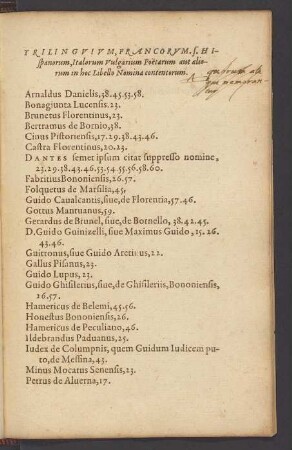 TRILINGVIVM, FRANCORVM. s. HI-
spanorum, Italorum Vulgarium Poëtarum aut alio-
rum in hoc Libello Nomina contentorum.
Arnaldus Danielis, 38.45.53.58.
Bonagiunta Lucensis. 23.
Brunetus Florentinus, 23.
Bertramus de Bornio, 38.
Cinus Pistoriensis, 17.29.38.43.46.
Castra Florentinus, 20.23.
DANTES semet ipsum citat suppresso nomine,
23.29.38.43.46.53.54.55.56.58.60.
Fabritius Bononiensis, 26.57.
Folquetus de Marsilia, 45,
Guido Caualcantis, siue, de Florentia, 57.46.
Gottus Mantuanus, 59.
Gerardus de Brunel, siue, de Bornello, 38.42.45.
D. Guido Guinizelli, siue Maximus Guido, 15.26.
43.46.
Guittonus, siue Guido Aretinus, 22.
Gallus Pisanus, 23.
Guido Lupus, 23.
Guido Ghisilerius, siue, de Ghisileriis, Bononiensis,
26.57.
Hamericus de Belemi, 45.56.
Honestus Bononiensis, 26.
Hamericus de Peculiano, 46.
Ildebrandus Paduanus, 25.
Iudex de Columpnis, quem Guidum Iudicem pu-
to, de Messina, 43.
Minus Mocatus Senensis, 23.
Petrus de Aluerna, 17.